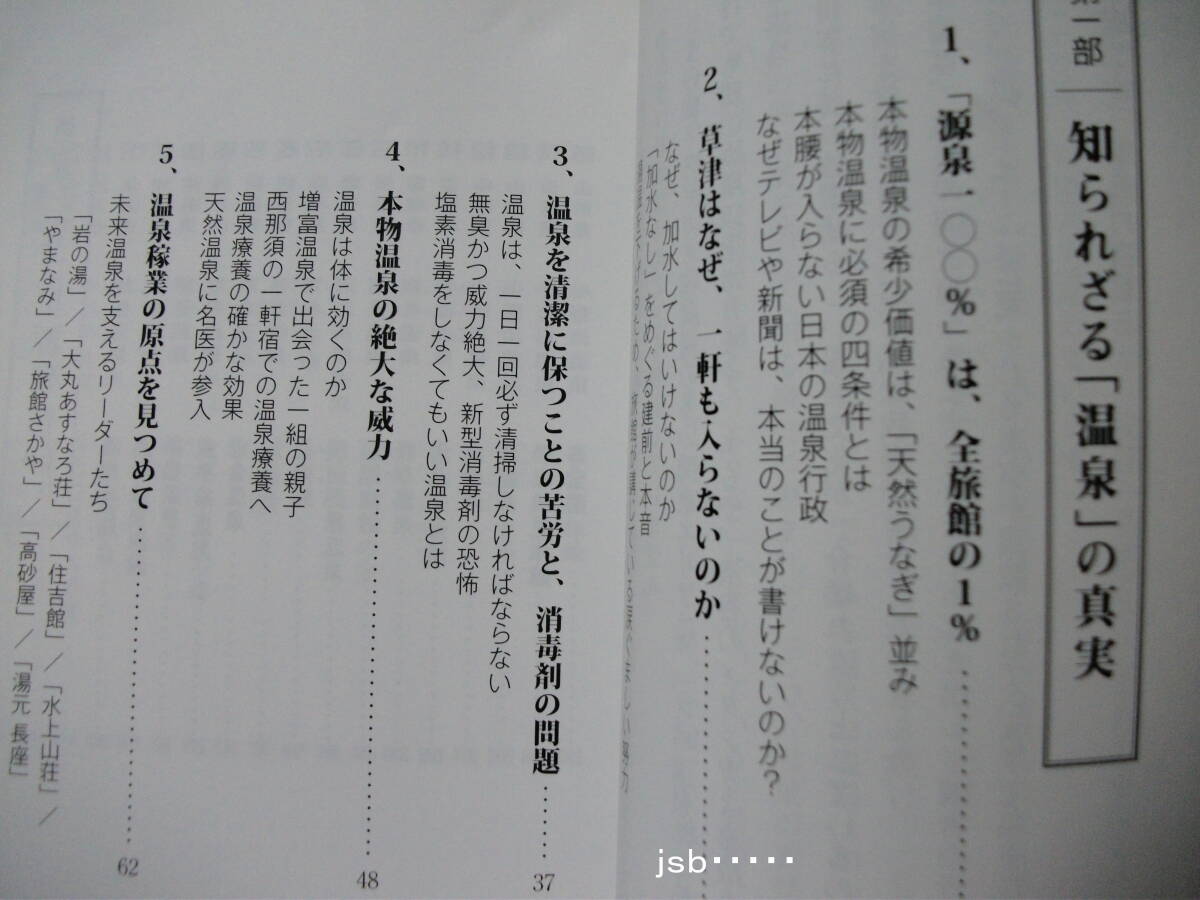 第一部 知られざる「温泉」の真実
1、「源泉一〇〇%」は、全旅館の1%
本物温泉の希少価値は、「天然うなぎ」並み
本物温泉に必須の四条件とは
本腰が入らない日本の温泉行政
なぜテレビや新聞は、本当のことが書けないのか?
2、草津はなぜ、一軒も入らないのか
なぜ、加水してはいけないのか
「加水なし」をめぐる建前と本音
3、温泉を清潔に保つことの苦労と、消毒剤の問題 37
温泉は、一日一回必ず清掃しなければならない
無臭かつ威力絶大、新型消毒剤の恐怖
塩素消毒をしなくてもいい温泉とは
4、本物温泉の絶大な威力 48
温泉は体に効くのか
増富温泉で出会った一組の親子
西那須の一軒宿での温泉療養へ
温泉療養の確かな効果
天然温泉に名医が参入
5、温泉稼業の原点を見つめて 62
未来温泉を支えるリーダーたち
「岩の湯」/「大丸あすなろ荘」/「住吉館」/「水上山荘」/
「やまなみ」/「旅館さかや」/「高砂屋」/「湯元 長座」
jsb・・・・・